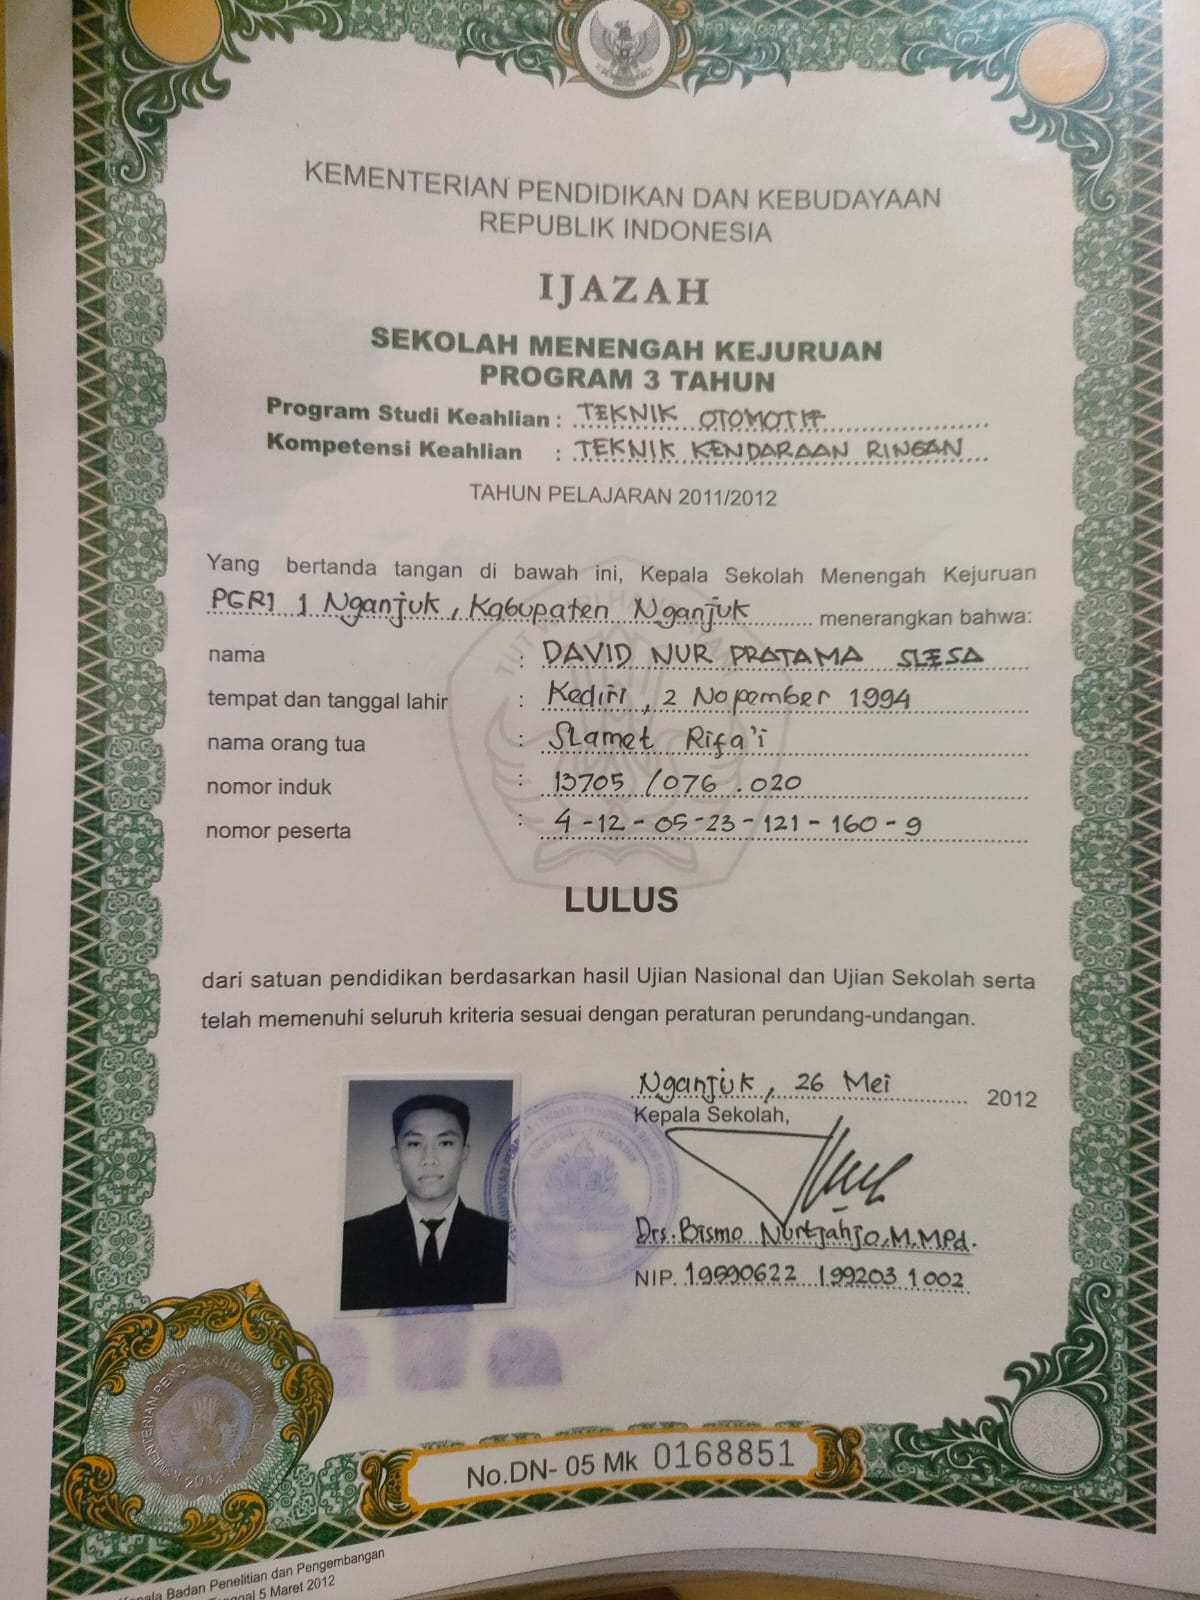 KEMENTERIAN PENDIDIKAN DAN KEBUDAYAAN
REPUBLIK INDONESIA
IJAZAH
SEKOLAH MENENGAH KEJURUAN
PROGRAM 3 TAHUN
Program Studi Keahlian : TEKNIK OTOMOTIF
Kompetensi Keahlian : TEKNIK KENDARAAN RINGAN
TAHUN PELAJARAN 2011/2012
Yang bertanda tangan di bawah ini, Kepala Sekolah Menengah Kejuruan
PGRI 1 Nganjuk, Kabupaten Nganjuk menerangkan bahwa:
nama : DAVID NUR PRATAMA SLESA
tempat dan tanggal lahir : Kediri, 2 Nopember 1994
nama orang tua : Slamet Rifa'i
nomor induk : 13705 /076.020
nomor peserta : 4-12-05-23-121-160-9
LULUS
dari satuan pendidikan berdasarkan hasil Ujian Nasional dan Ujian Sekolah serta
telah memenuhi seluruh kriteria sesuai dengan peraturan perundang-undangan.
Nganjuk, 26 Mei 2012
Kepala Sekolah,
Drs. Bismo Nurtjahjo, M.MPd.
NIP. 19590622 199203 1 002
KEMENTERIAN PENDIDIKAN DAN KEBUDAYAAN
2012
No.DN- 05 Mk 0168851
Kepala Badan Penelitian dan Pengembangan
5 Maret 2012